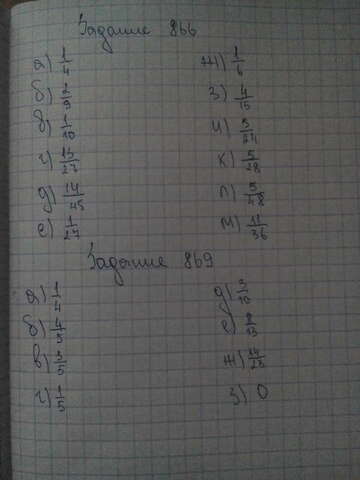 Задание 866
а) 1/4
б) 2/9
в) 1/10
г) 13/27
д) 14/45
е) 1/27
ж) 1/6
з) 4/15
и) 5/24
к) 5/28
л) 5/48
м) 11/36
Задание 869
а) 1/4
б) 4/9
в) 3/5
г) 1/5
д) 3/10
е) 8/13
ж) 14/25
з) 0